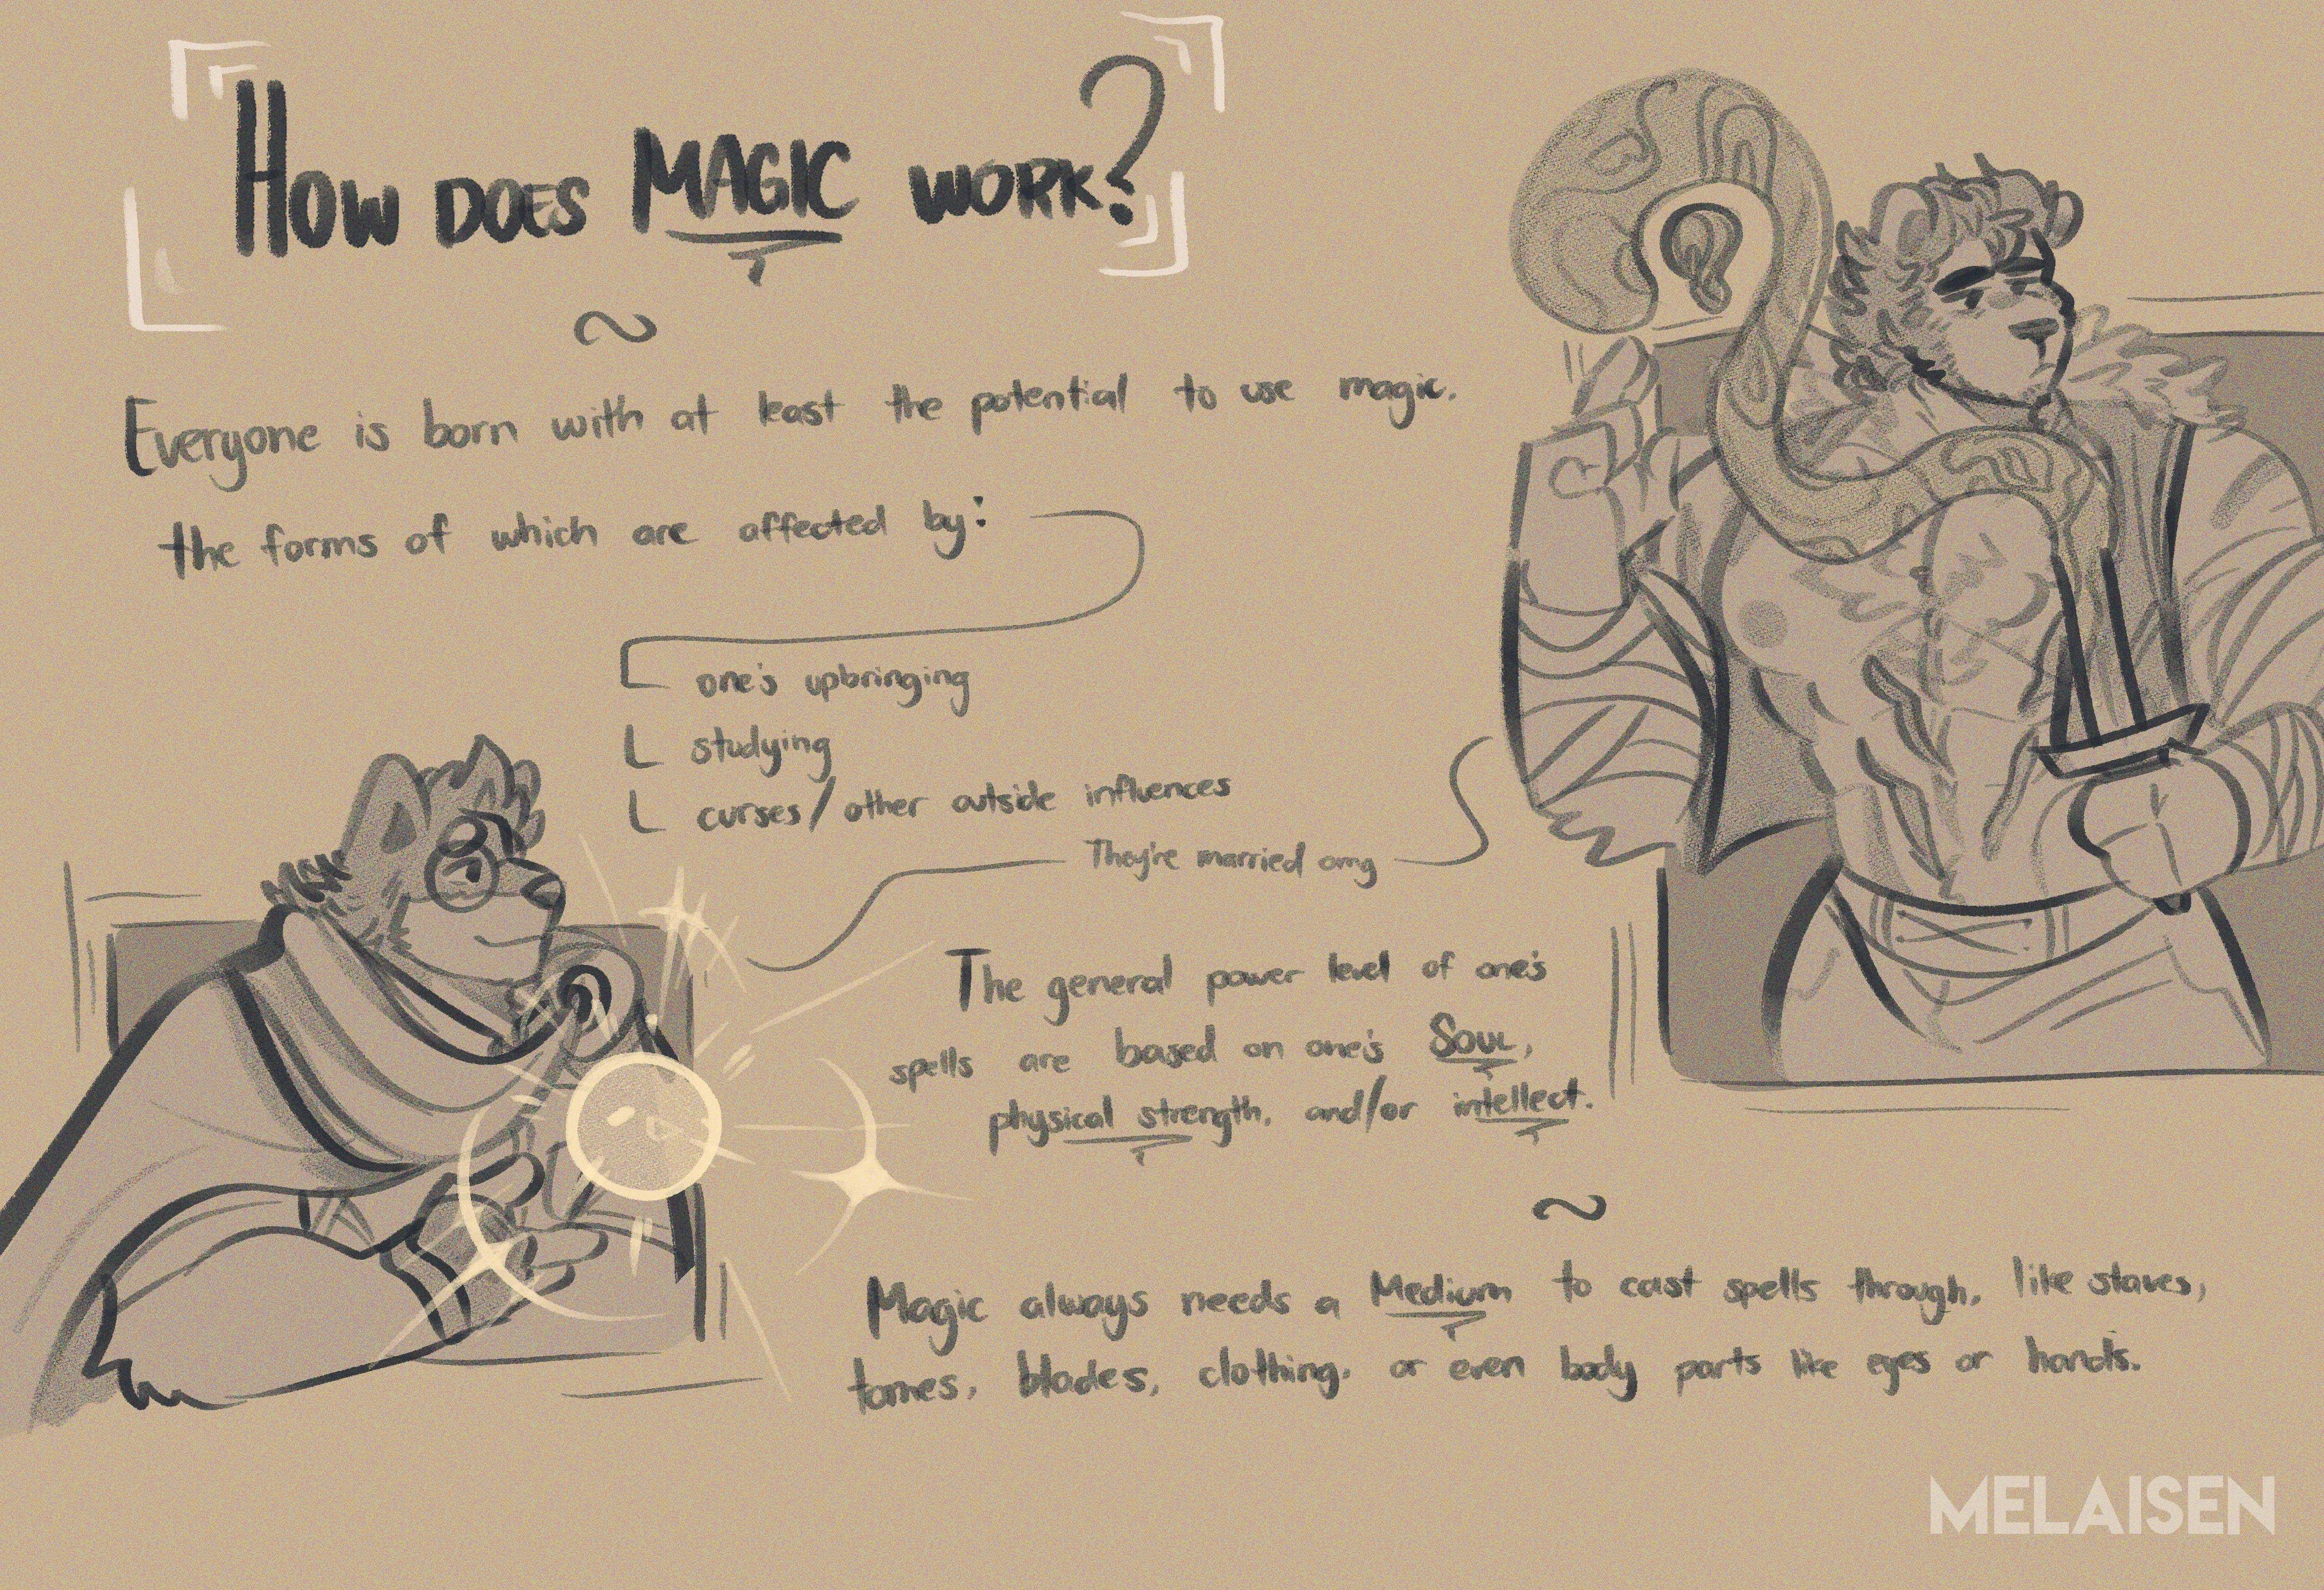 HOW DOES MAGIC WORK?
~
Everyone is born with at least the potential to use magic.
the forms of which are affected by:
one's upbringing
studying
curses/other outside influences
They're married omg
The general power level of one's
spells are based on one's Soul,
physical strength, and/or intellect.
~
Magic always needs a Medium to cast spells through, like staves,
tomes, blades, clothing, or even body parts like eyes or hands.
MELAISEN